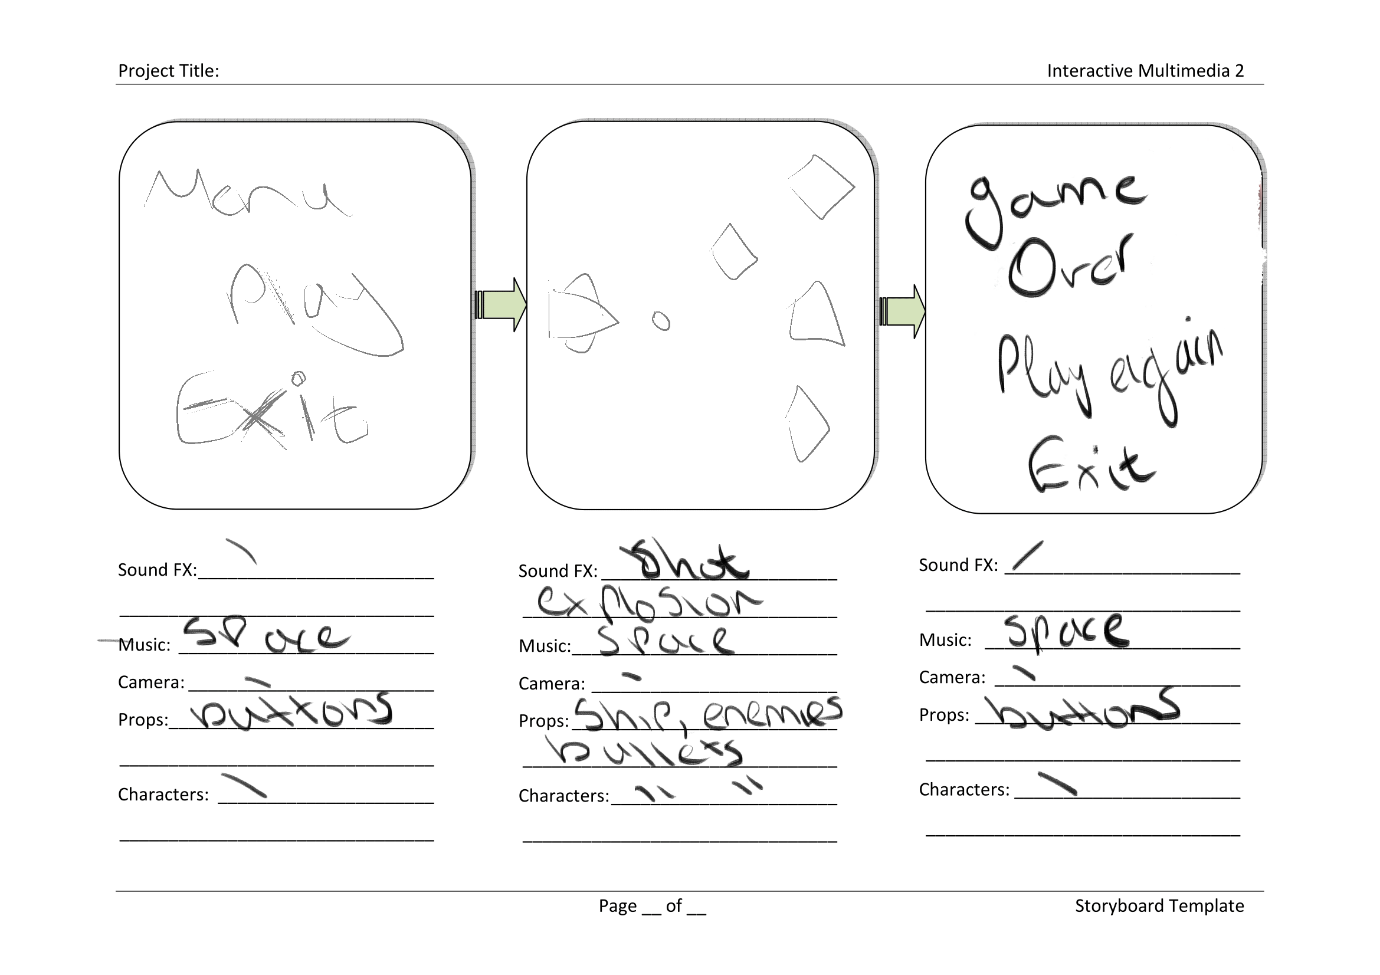 Project Title:
Interactive Multimedia 2
Menu
Play
Exit
game
Over
Play again
Exit
Sound FX:
Music: space
Camera:
Props: buttons
Characters:
Sound FX: shot
explosion
Music: space
Camera:
Props: Ship, enemies
bullets
Characters: " "
Sound FX:
Music: space
Camera:
Props: buttons
Characters:
Page __ of __
Storyboard Template